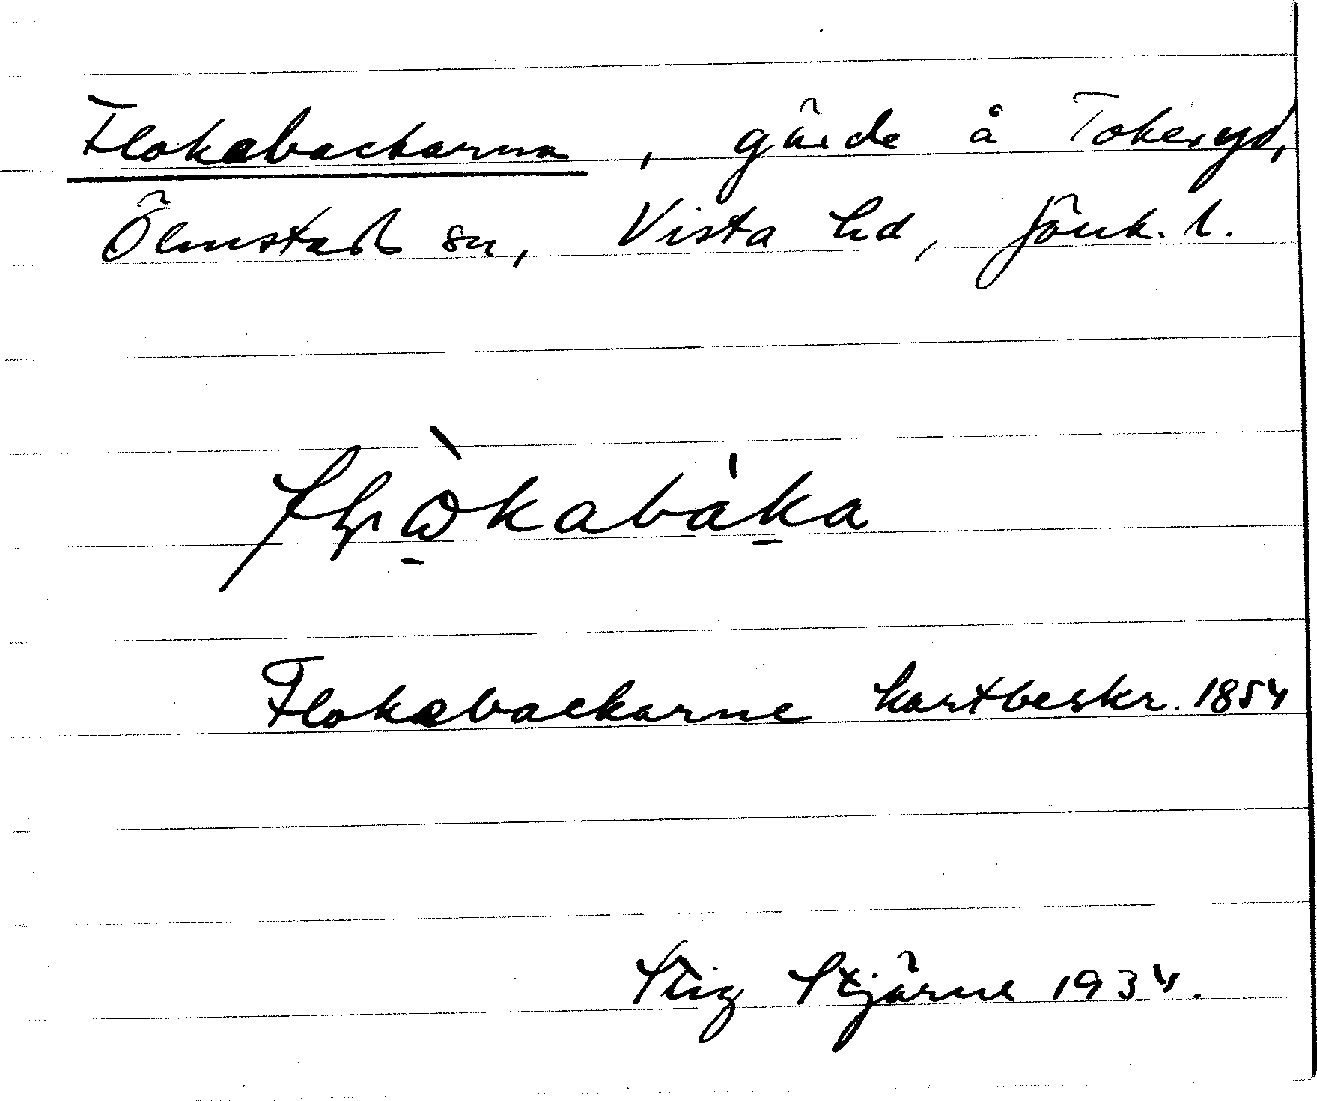 Flokabackarna, gärde å Tokeryd,
Ölmstads sn, Vista hd, Jönk. l.
Flokabackarne kartbeskr. 1854
Stig Stjärne 1934.